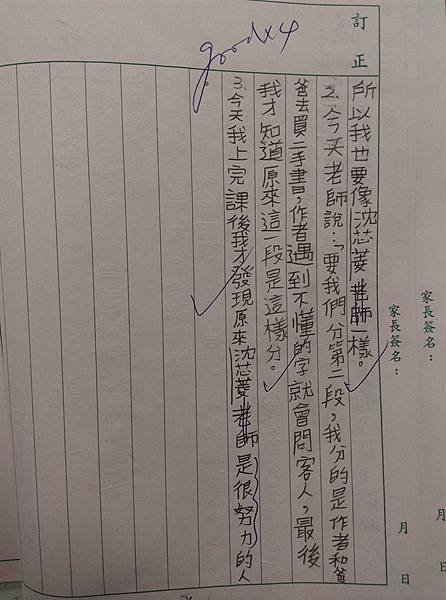 訂正
good x4
所以我也要像沈芯菱老師一樣。
2.今天老師說:「要我們分第二段,我分的是作者和爸
爸去買二手書,作者遇到不懂的字就會問客人,最後
我才知道原來這一段是這樣分。
3.今天我上完課後我才發現原來沈芯菱老師是很努力的人
家長簽名:
月 日
家長簽名:
月 日